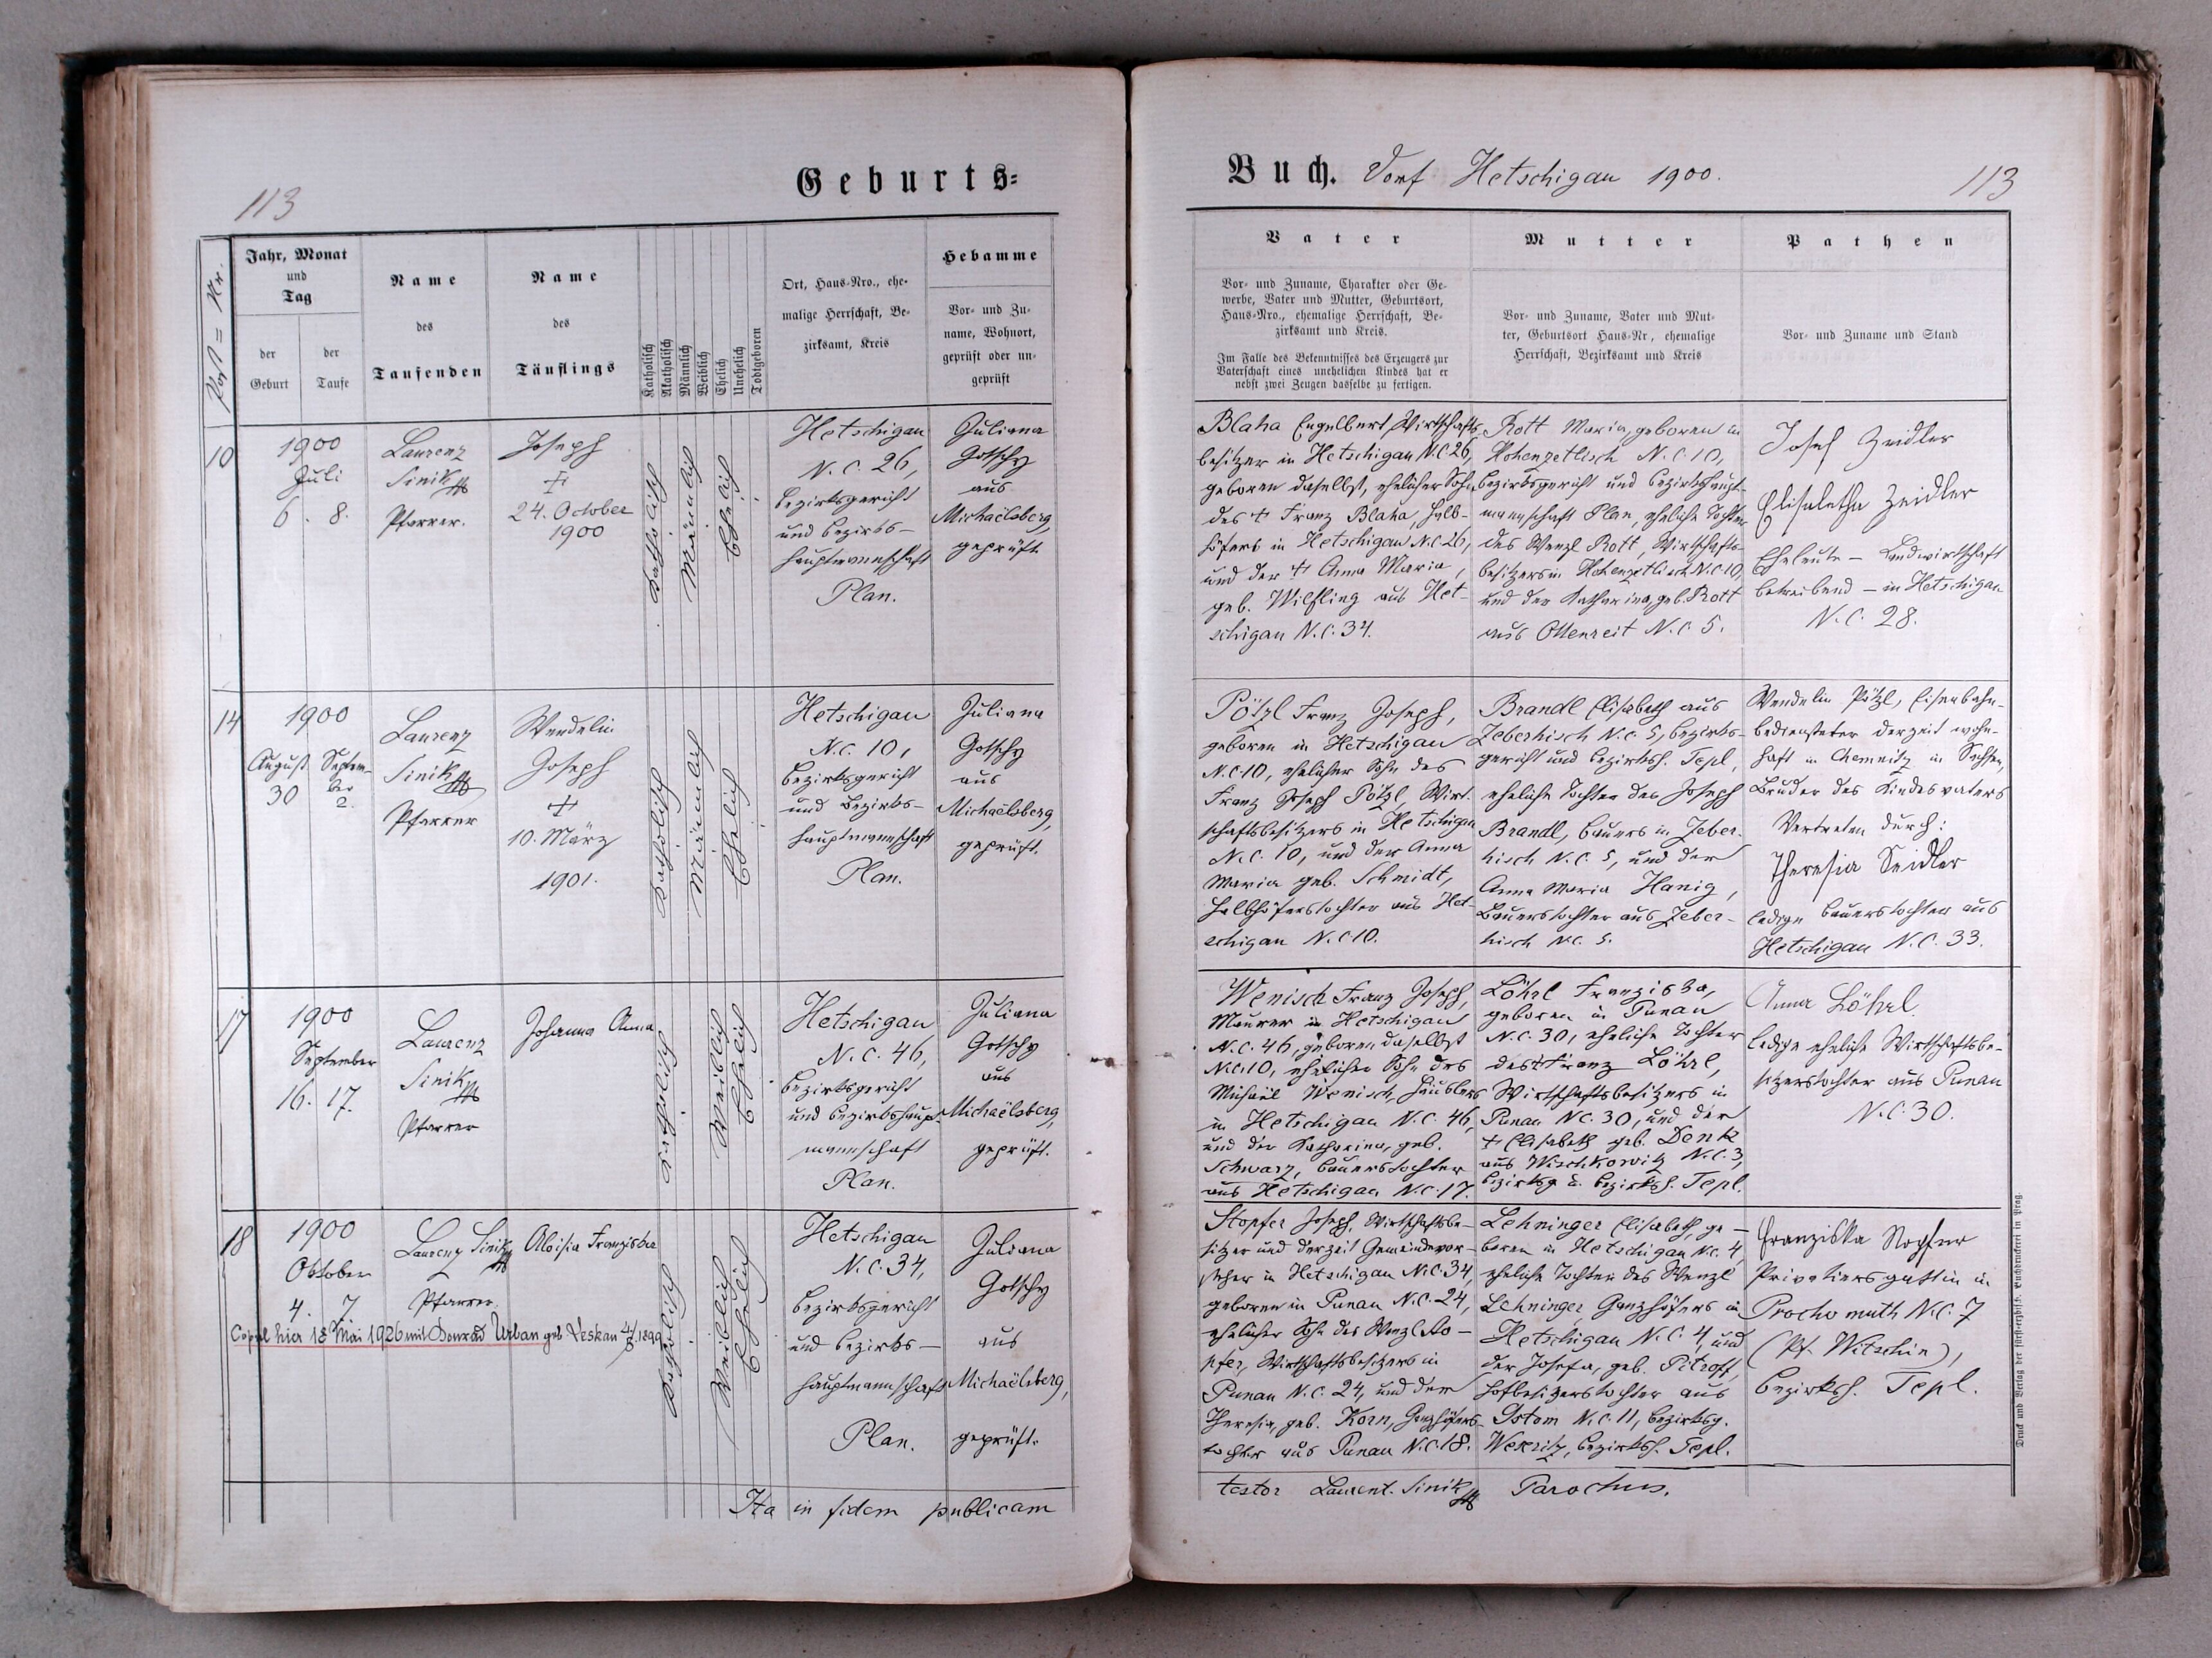 113
Geburts=
Post=Nr.
Jahr, Monat
und
Tag
der
Geburt
der
Taufe
Name
des
Taufenden
Name
des
Täuflings
Katholisch
Akatholisch
Männlich
Weiblich
Ehelich
Unehelich
Todtgeboren
Ort, Haus-Nro., ehe-
malige Herrschaft, Be-
zirksamt, Kreis
Hebamme
Vor- und Zu-
name, Wohnort,
geprüft oder un-
geprüft
10
1900
Juli
6. 8.
Laurenz
Sinik
Pfarrer.
Joseph
†
24. October
1900
Katholisch
Männlich
Ehelich
Hetschigau
N.C. 26,
Bezirksgericht
und Bezirks-
hauptmannschaft
Plan.
Juliana
Gotschy
aus
Michaëlsberg,
geprüft.
14
1900
August
30
Septem-
ber
2.
Laurenz
Sinik
Pfarrer
Wendelin
Joseph
†
10. März
1901.
Katholisch
Männlich
Ehelich
Hetschigau
N.C. 10,
Bezirksgericht
und Bezirks-
hauptmannschaft
Plan.
Juliana
Gotschy
aus
Michaëlsberg,
geprüft.
17
1900
September
16. 17.
Laurenz
Sinik
Pfarrer
Johanna Anna
Katholisch
Weiblich
Ehelich
Hetschigau
N.C. 46,
Bezirksgericht
und Bezirkshaupt-
mannschaft
Plan.
Juliana
Gotschy
aus
Michaëlsberg,
geprüft.
18
1900
Oktober
4. 7.
Laurenz Sinik
Pfarrer.
Aloisia Franziska
Copul. hier 18 Mai 1926 mit Konrad Urban geb. Leskau 4/5 1899
Katholisch
Weiblich
Ehelich
Hetschigau
N.C. 34,
Bezirksgericht
und Bezirks-
hauptmannschaft
Plan.
Juliana
Gotschy
aus
Michaëlsberg,
geprüft.
Ita in fidem publicam
Buch. Dorf Hetschigau 1900.
113
Vater
Vor- und Zuname, Charakter oder Ge-
werbe, Vater und Mutter, Geburtsort,
Haus-Nro., ehemalige Herrschaft, Be-
zirksamt und Kreis.
Im Falle des Bekenntnisses des Erzeugers zur
Vaterschaft eines unehelichen Kindes hat er
nebst zwei Zeugen dasselbe zu fertigen.
Mutter
Vor- und Zuname, Vater und Mut-
ter, Geburtsort Haus-Nr., ehemalige
Herrschaft, Bezirksamt und Kreis
Pathen
Vor- und Zuname und Stand
Blaha Engelbert, Wirtschafts-
besitzer in Hetschigau N.C. 26,
geboren daselbst, ehelicher Sohn
des † Franz Blaha, Halb-
höfers in Hetschigau N.C. 26,
und der † Anna Maria,
geb. Wilfling aus Het-
schigau N.C. 34.
Rott Maria, geboren in
Hohenzetlisch N.C. 10,
Bezirksgericht und Bezirkshaupt-
mannschaft Plan, eheliche Tochter
des Wenzl Rott, Wirtschafts-
besitzers in Hohenzetlisch N.C. 10,
und der Katharina, geb. Rott
aus Ottenreit N.C. 5.
Josef Zeidler
Elisabetha Zeidler
Eheleute – Landwirtschaft
betreibend – in Hetschigau
N.C. 28.
Pötzl Franz Joseph,
geboren in Hetschigau
N.C. 10, ehelicher Sohn des
Franz Joseph Pötzl, Wirt-
schaftsbesitzers in Hetschigau
N.C. 10, und der Anna
Maria geb. Schmidt,
Halbhöferstochter aus Het-
schigau N.C. 10.
Brandl Elisabeth aus
Zeberhisch N.C. 5, Bezirks-
gericht und Bezirksh. Tepl,
eheliche Tochter des Joseph
Brandl, Bauers in Zeber-
hisch N.C. 5, und der
Anna Maria Hanig,
Bauerstochter aus Zeber-
hisch N.C. 5.
Wendelin Pötzl, Eisenbahn-
bediensteter derzeit wohn-
haft in Chemnitz in Sachsen,
Bruder des Kindesvaters
Vertreten durch:
Theresia Seidler
ledige Bauerstochter aus
Hetschigau N.C. 33.
Wenisch Franz Joseph,
Maurer in Hetschigau
N.C. 46, geboren daselbst
N.C. 10, ehelicher Sohn des
Michael Wenisch, Häuslers
in Hetschigau N.C. 46,
und der Katharina, geb.
Schwarz, Bauerstochter
aus Hetschigau N.C. 17.
Löhrl Franziska,
geboren in Punau
N.C. 30, eheliche Tochter
des † Franz Löhrl,
Wirtschaftsbesitzers in
Punau N.C. 30, und der
† Elisabeth geb. Denk
aus Wischkowitz N.C. 3,
Bezirksg. u. Bezirksh. Tepl.
Anna Löhrl
ledige eheliche Wirtschaftsbe-
sitzerstochter aus Punau
N.C. 30.
Stopfer Joseph, Wirtschaftsbe-
sitzer und derzeit Gemeindevor-
steher in Hetschigau N.C. 34,
geboren in Punau N.C. 24,
ehelicher Sohn des Wenzl Sto-
pfer, Wirtschaftsbesitzers in
Punau N.C. 24, und der
Theresia, geb. Korn, Ganzhöfers-
tochter aus Punau N.C. 18.
Lehninger Elisabeth, ge-
boren in Hetschigau N.C. 4,
eheliche Tochter des Wenzl
Lehninger Ganzhöfers in
Hetschigau N.C. 4, und
der Josefa, geb. Pitroff,
Hofbesitzerstochter aus
Pstom N.C. 11, Bezirksg.
Weseritz, Bezirksh. Tepl.
Franziska Stopfer
Privatiersgattin in
Prochomuth N.C. 7
(Pf. Witschin),
Bezirksh. Tepl.
testor Laurent. Sinik Parochus.
Druck und Verlag der fürst-erzbisch. Buchdruckerei in Prag.